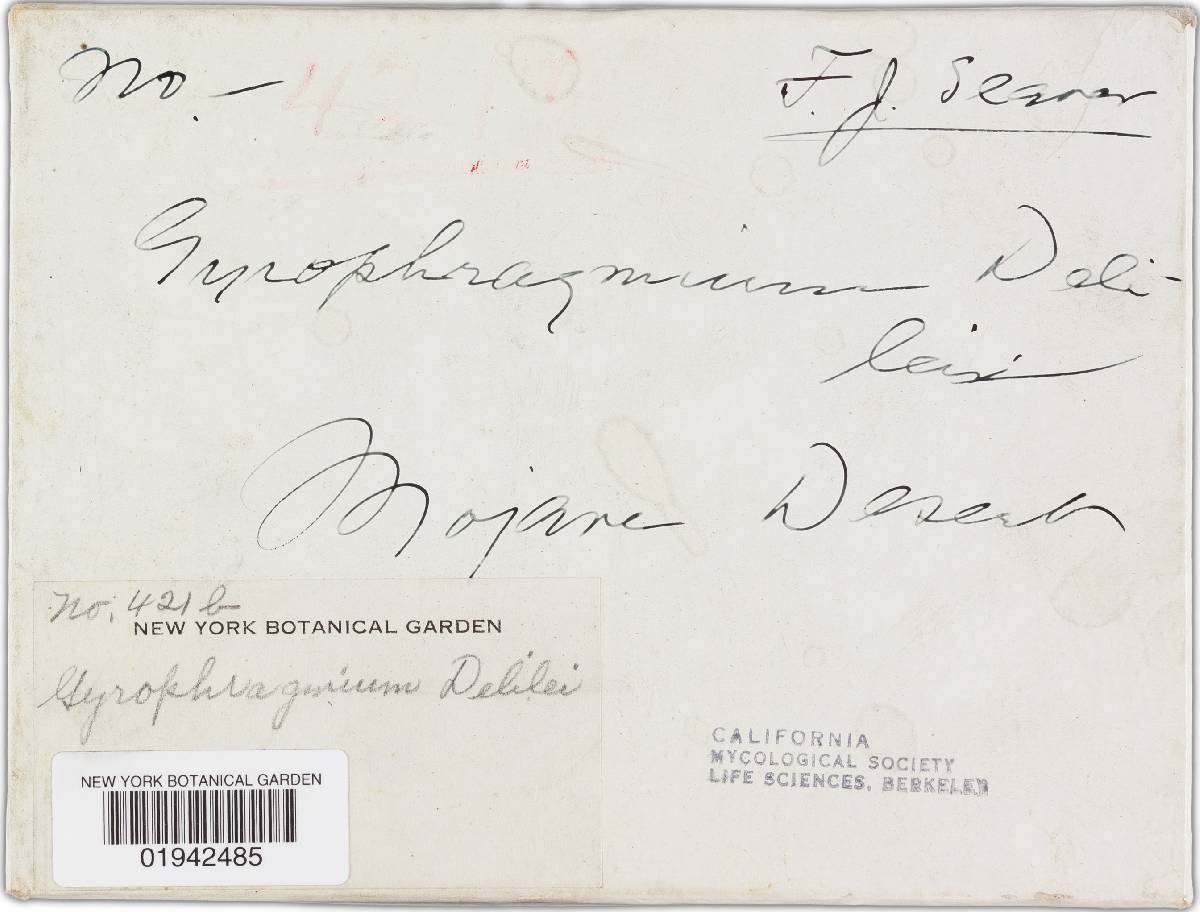 No. — F. J. Seaver
Gyrophragmium Deli-
leisi
Mojave Desert
No. 421 b
NEW YORK BOTANICAL GARDEN
Gyrophragmium Delilei
CALIFORNIA
MYCOLOGICAL SOCIETY
LIFE SCIENCES, BERKELEY
NEW YORK BOTANICAL GARDEN
01942485